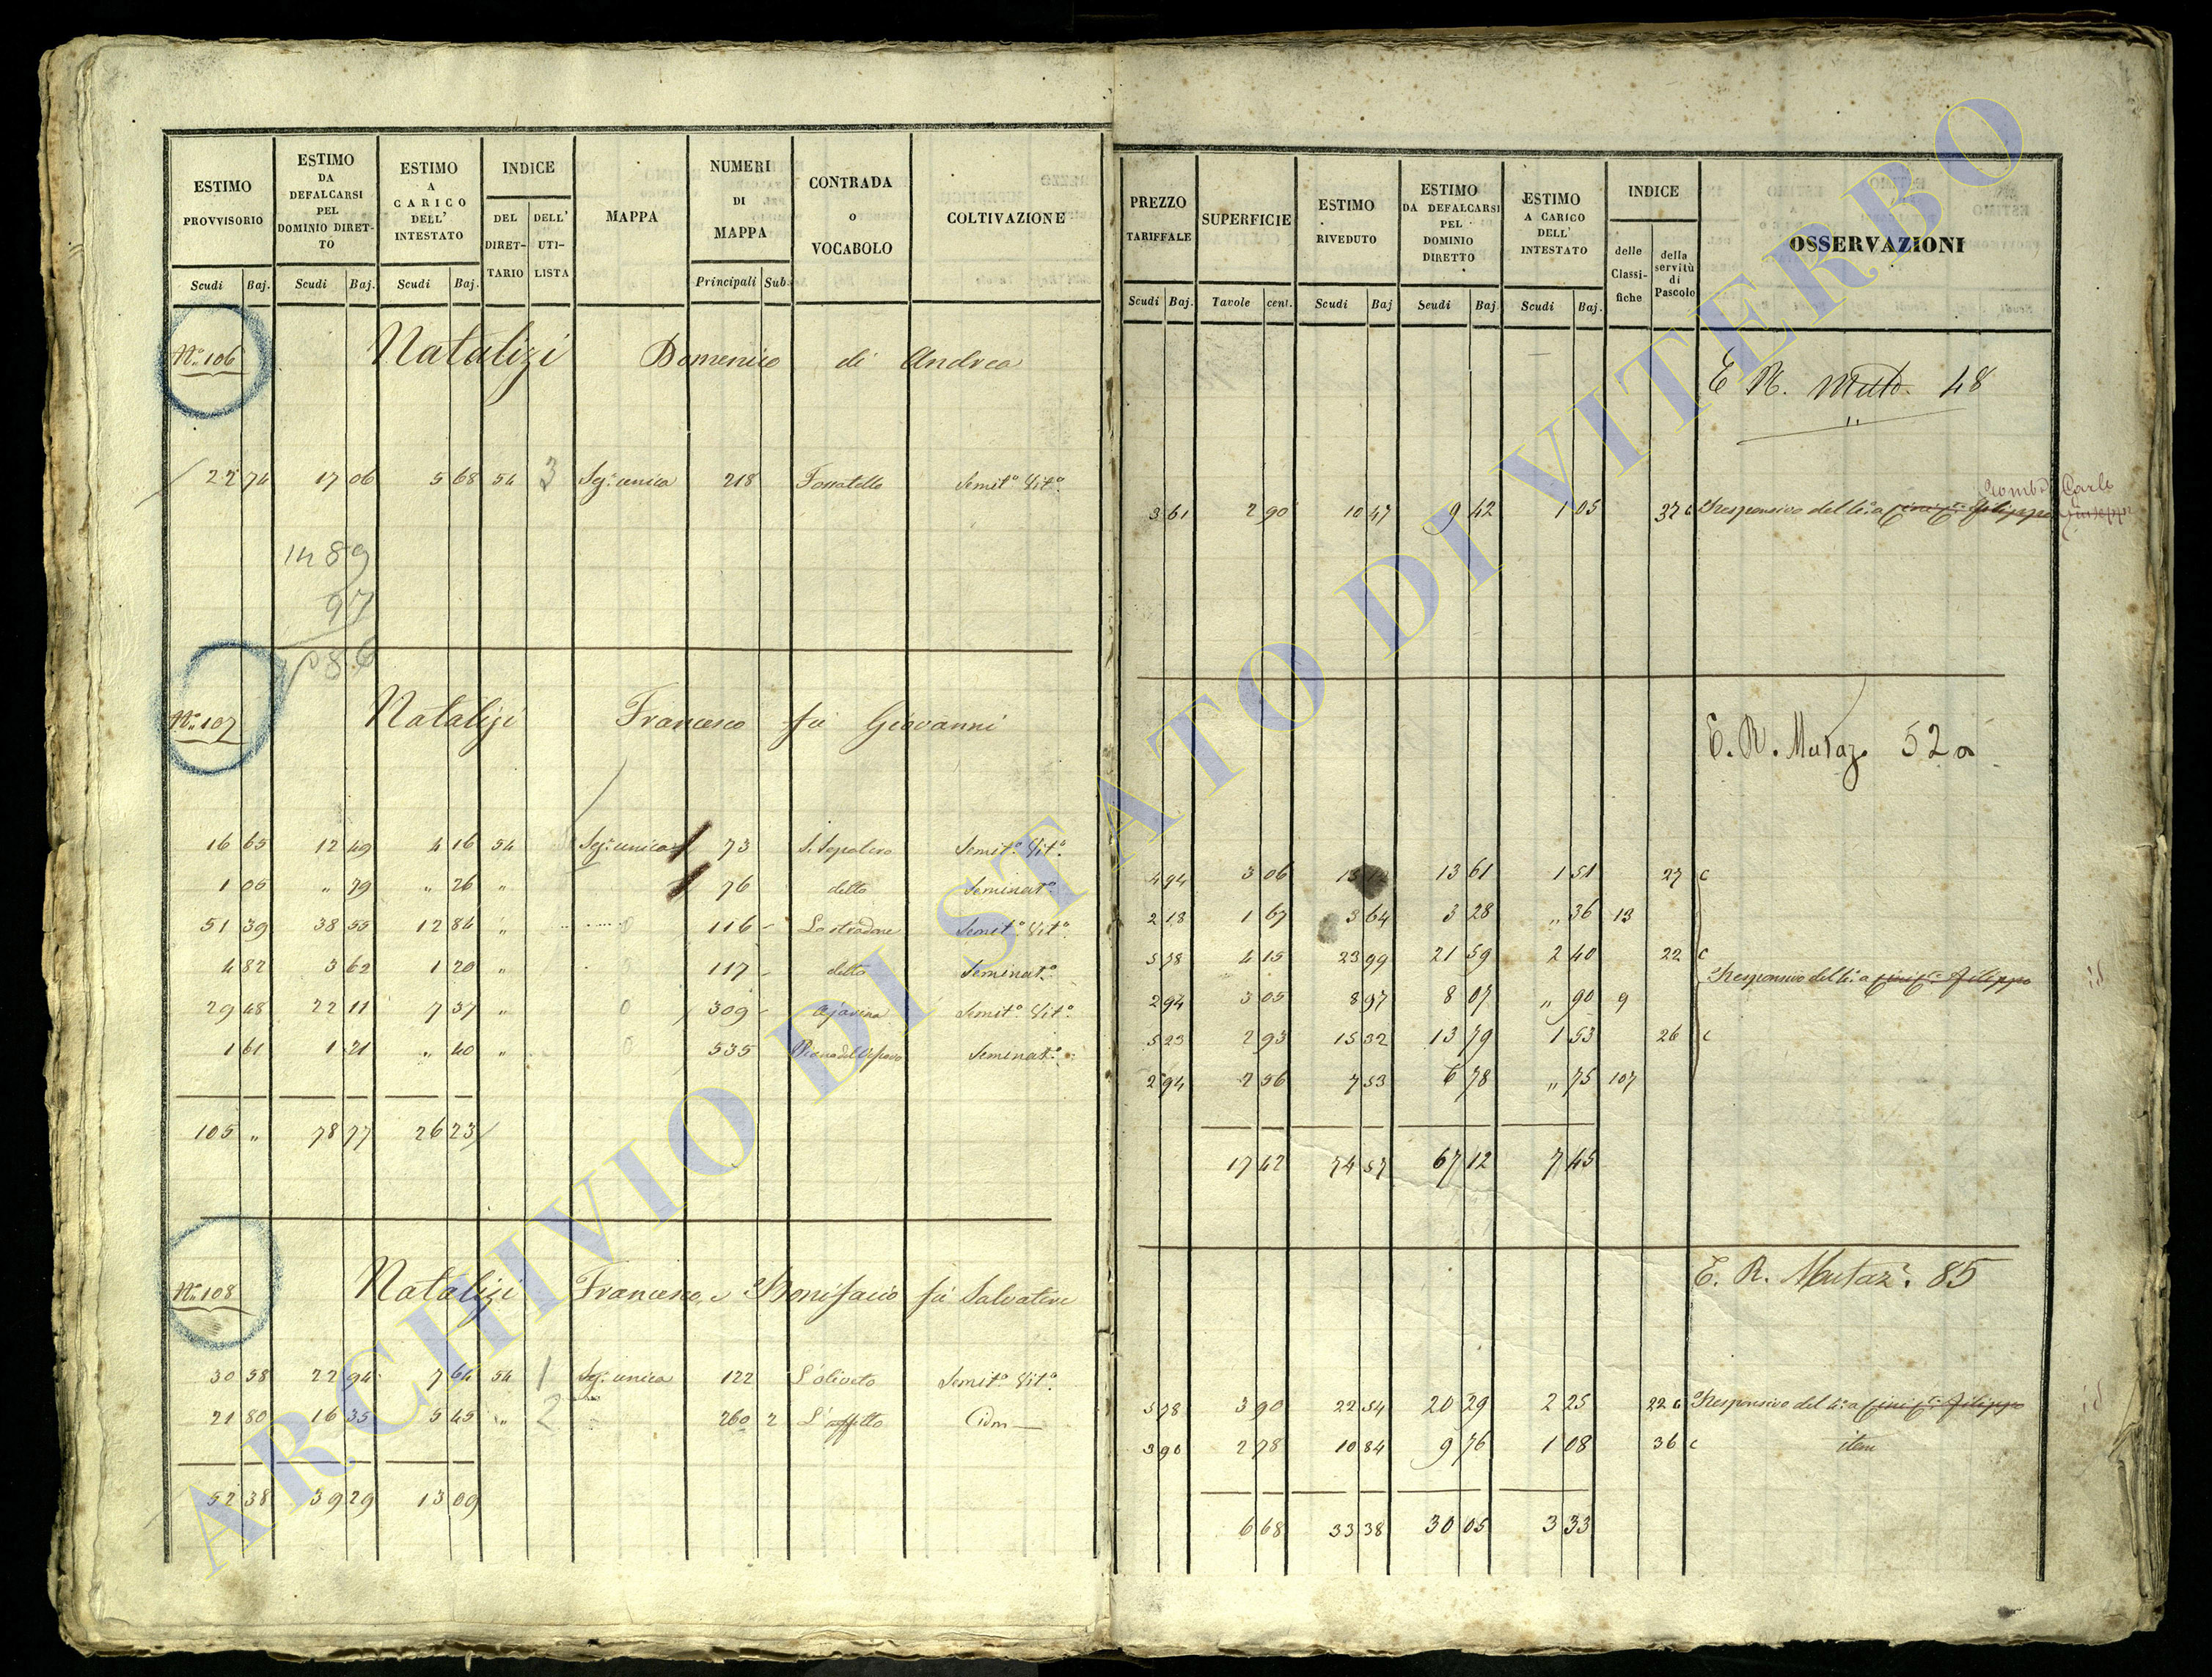 ESTIMO PROVVISORIO
ESTIMO DA DEFALCARSI PEL DOMINIO DIRET-TO
ESTIMO A CARICO DELL' INTESTATO
INDICE
DEL DIRET-TARIO
DELL' UTI-LISTA
MAPPA
NUMERI DI MAPPA
CONTRADA o VOCABOLO
COLTIVAZIONE
Scudi Baj. Scudi Baj. Scudi Baj. Principali Sub.
N.º 106 Natalizi Domenico di Andrea
22 74 17 06 5 68 54 3 Sez. unica 218 Fossatello Semit.º Vit.º
14 89
97
N.º 107 Natalizi Francesco fù Giovanni
16 65 12 49 4 16 54 Sez. unica 73 S. Sepolcro Semit.º Vit.º
1 05 " 79 " 26 " 76 detto Seminat.º
51 39 38 55 12 84 " 116 Lo stradone Semit.º Vit.º
4 82 3 62 1 20 " 117 detto Seminat.º
29 48 22 11 7 37 " 309 Semit.º Vit.º
1 61 1 21 " 40 " 535 Seminat.º
105 " 78 77 26 23
N.º 108 Natalizi Francesco, e Bonifacio fù Salvatore
30 58 22 94 7 64 54 1 Sez. unica 122 L'oliveto Semit.º Vit.º
21 80 16 35 5 45 " 2 260 2 Idm
52 38 39 29 13 09
PREZZO TARIFFALE
SUPERFICIE
ESTIMO RIVEDUTO
ESTIMO DA DEFALCARSI PEL DOMINIO DIRETTO
ESTIMO A CARICO DELL' INTESTATO
INDICE
delle Classi-fiche
della servitù di Pascolo
OSSERVAZIONI
Scudi Baj. Tavole cent. Scudi Baj Scudi Baj. Scudi Baj.
E R. Mut. 48
Carlo
3 61 2 90 10 47 9 42 1 05 37 c Responsivo del 4.º a Filippo Giuseppe
E. R. Mutaz. 52 a
4 94 3 06 13 61 1 51 27 c
2 18 1 67 3 64 3 28 " 36 13
5 78 4 15 23 99 21 59 2 40 22 c
Responsivo del 4.º a Filippo id
2 94 3 05 8 97 8 07 " 90 9
5 23 2 93 15 32 13 79 1 53 26 c
2 94 2 56 7 53 6 78 " 75 107
17 42 74 57 67 12 7 45
E. R. Mutaz. 85
5 78 3 90 22 54 20 29 2 25 22 c Responsivo del 4.º a Filippo id
3 90 2 78 10 84 9 76 1 08 36 c item
6 68 33 38 30 05 3 33
ARCHIVIO DI STATO DI VITERBO